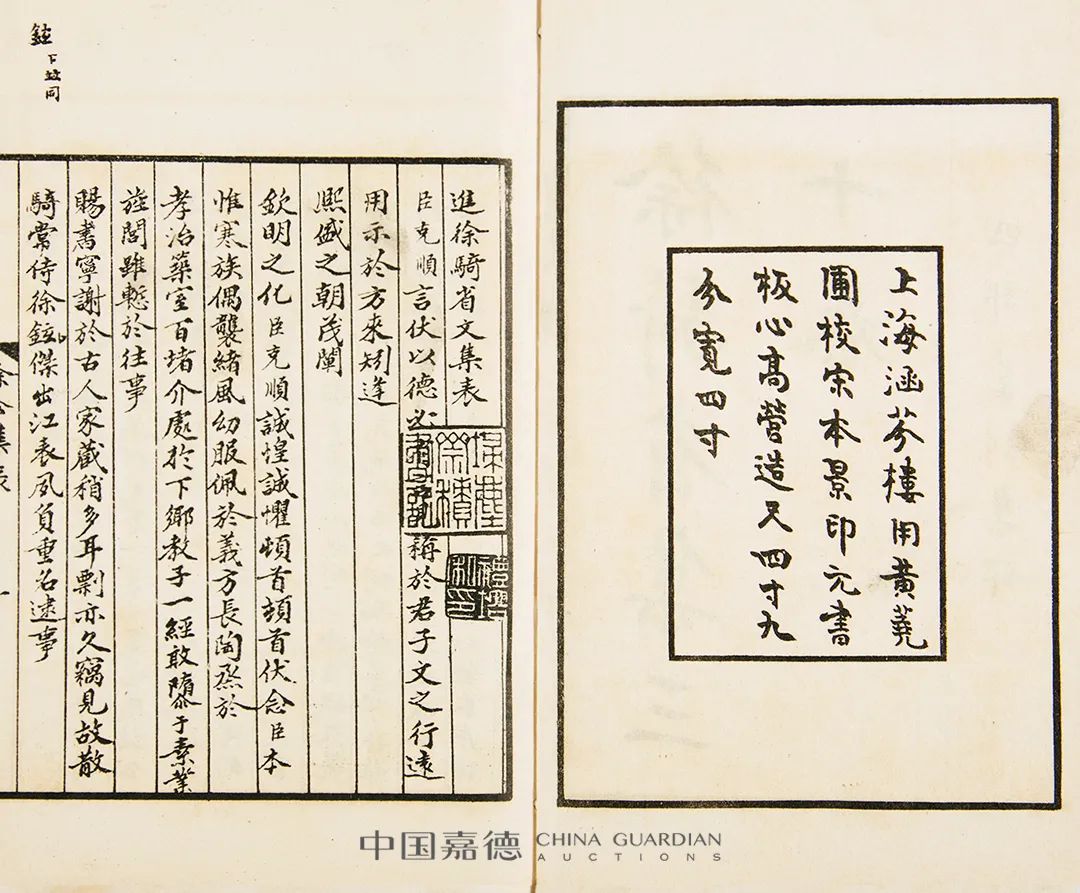 上海涵芬樓用黃蕘
圃校宋本景印元書
板心高營造尺四寸九
分寬四寸
進徐騎省文集表
臣克順言伏以德必
稱於君子文之行遠
用示於方來矧逢
熙盛之朝茂闡
欽明之化臣克順誠惶誠懼頓首頓首伏念臣本
惟寒族偶襲緒風幼服佩於義方長陶烝於
孝治築室百堵介處於下鄉教子一經敢隳于素業
旌閭雖慙於往事
賜書寧謝於古人家藏稍多耳剽亦久竊見故散
騎常侍徐鉉傑出江表夙負重名逮事
鉉
下並同
中国嘉德 CHINA GUARDIAN
AUCTIONS